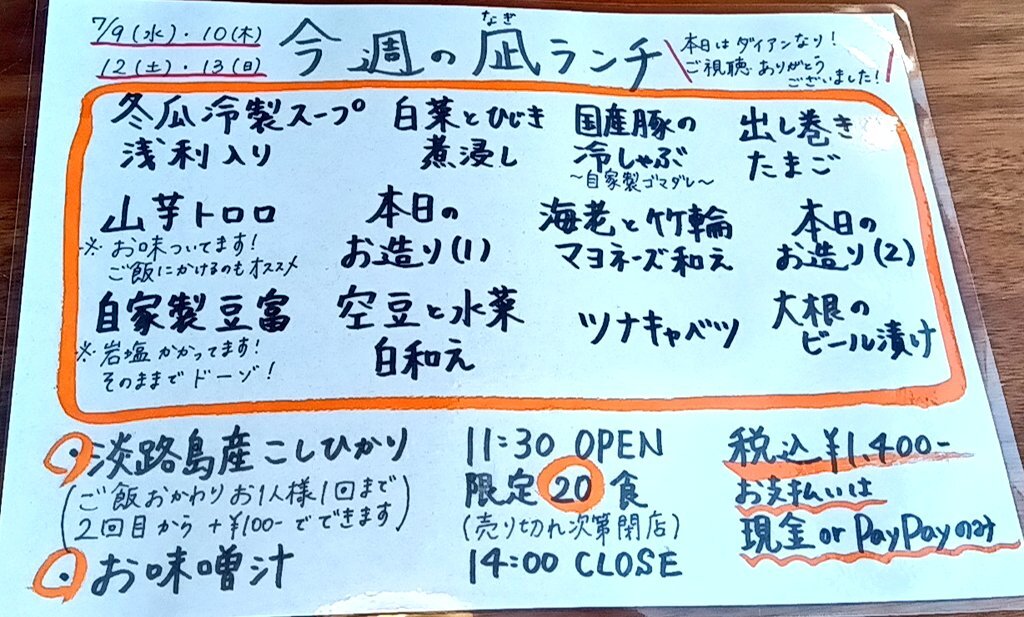 7/9(水)・10(木)
12(土)・13(日)
今週の凪ランチ
なぎ
本日はダイアンなり!
ご視聴ありがとう
ございました!
冬瓜冷製スープ
浅利入り
白菜とひじき
煮浸し
国産豚の
冷しゃぶ
～自家製ゴマダレ～
出し巻き
たまご
山芋トロロ
※お味ついてます!
ご飯にかけるのもオススメ
本日の
お造り(1)
海老と竹輪
マヨネーズ和え
本日の
お造り(2)
自家製豆富
※岩塩かかってます!
そのままでドーゾ!
空豆と水菜
白和え
ツナキャベツ
大根の
ビール漬け
・淡路島産こしひかり
(ご飯おかわりお1人様1回まで
2回目から+¥100-でできます)
・お味噌汁
11:30 OPEN
限定20食
(売り切れ次第閉店)
14:00 CLOSE
税込¥1,400-
お支払いは
現金or PayPayのみ